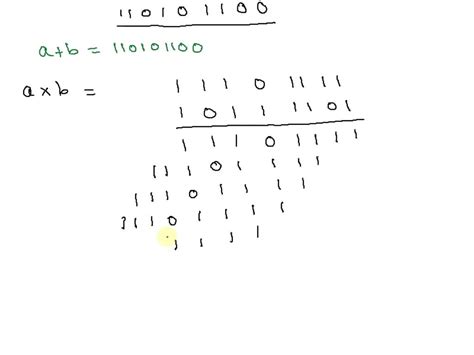 110101100
a+b = 110101100
a×b = 1 1 1 0 1111
1 0 1 1 1101
1 1 1 0 1111
1 1 1 0 1 1 1 1
1 1 1 0 1 1 1 1
1 1 1 0 1 1 1 1
1 1 1 1